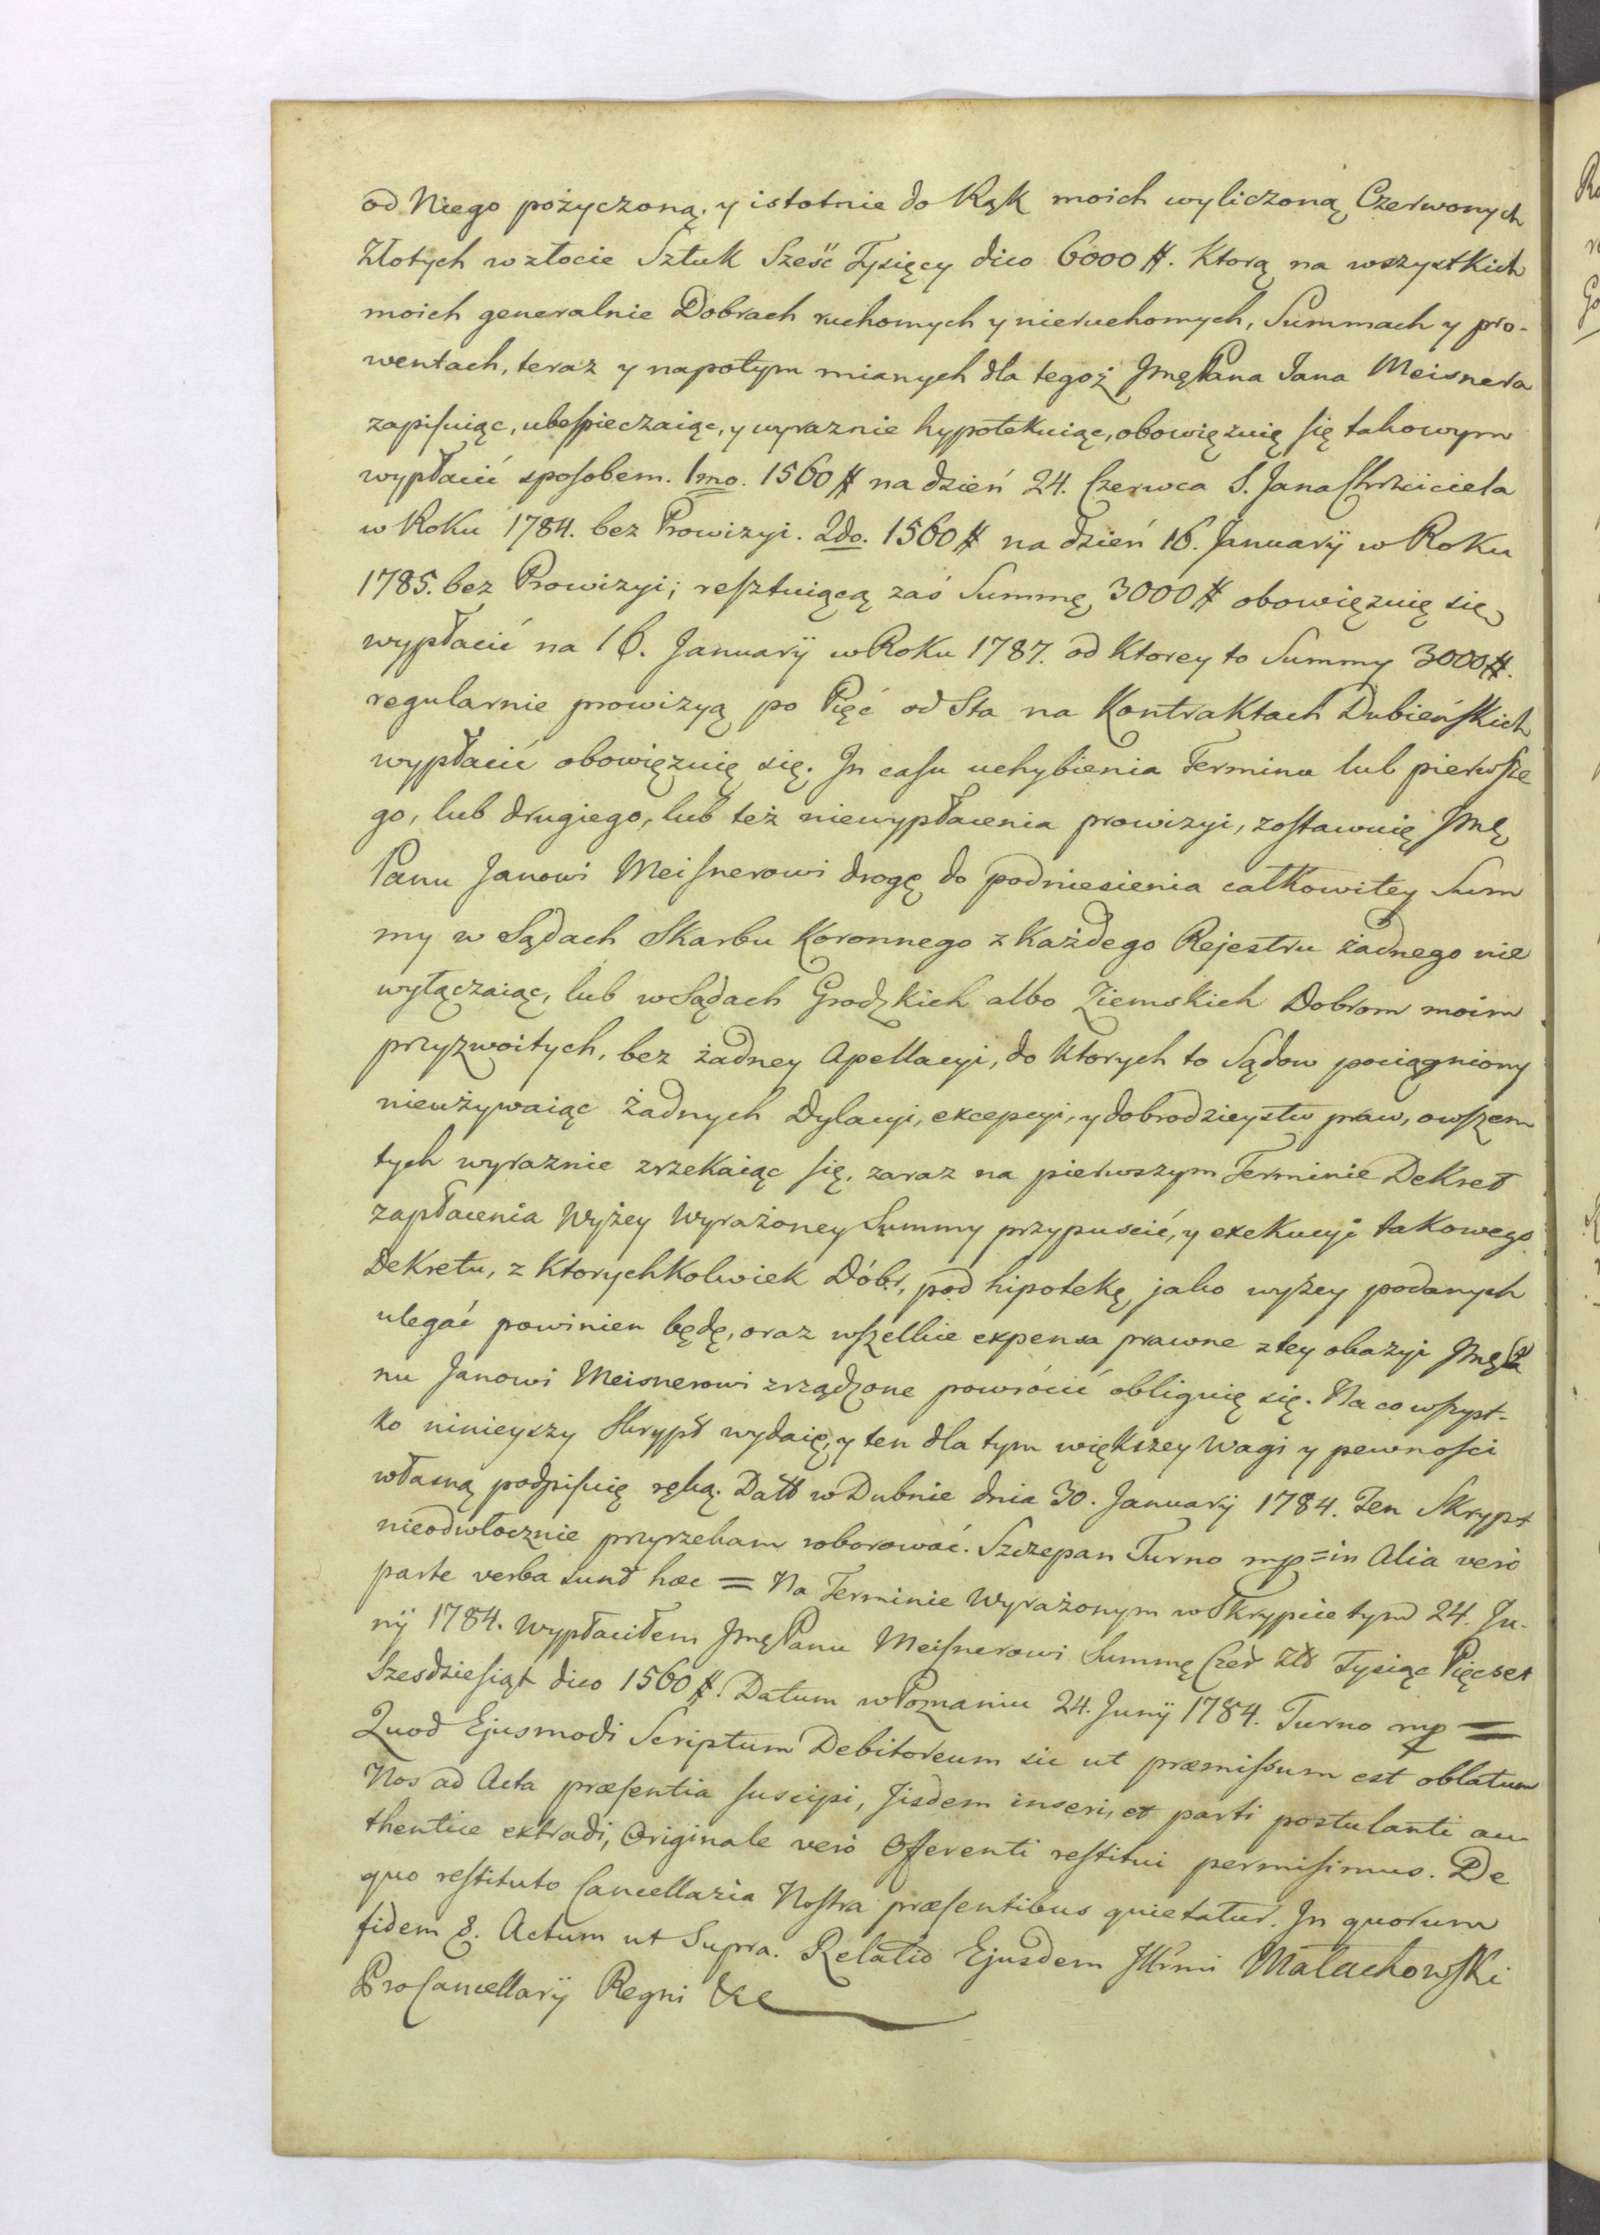 od Niego pożyczoną, y istotnie do Rąk moich wyliczoną Czerwonych
Złotych w złocie Sztuk Sześć Tysięcy dico 6000 #. Ktorą na wszystkich
moich generalnie Dobrach ruchomych y nieruchomych, Summach y pro-
wentach, teraz y napotym mianych dla tegoż Jmę Pana Jana Meisnera
zapisuiąc, ubespieczaiąc, y wyraznie hypotekuiąc, obowięzuię się takowym
wypłacić sposobem. 1mo. 1560 # na dzień 24. Czerwca S. Jana Chrzciciela
w Roku 1784. bez Prowizyi. 2do. 1560 # na dzień 16. Januarÿ w Roku
1785. bez Prowizyi; resztuiącą zaś Summę 3000 # obowięzuię się
wypłacić na 16. Januarÿ w Roku 1787. od Ktorey to Summy 3000 #.
regularnie prowizyą po Pięć od Sta na Kontraktach Dubieńskich
wypłacić obowięzuię się. In casu uchybienia Terminu lub pierwsze
go, lub drugiego, lub też niewypłacenia prowizyi, zostawuię Jmę
Panu Janowi Meisnerowi drogę do podniesienia całkowitey Sum
my w Sądach Skarbu Koronnego z Każdego Rejestru żadnego nie
wyłączaiąc, lub w Sądach Grodzkich albo Ziemskich Dobrom moim
przyzwoitych, bez żadney Apellacyi, do Ktorych to Sądow pociągniony
nieużywaiąc żadnych Dylacyi, excepcyi, y dobrodzieystw praw, owszem
tych wyraznie zrzekaiąc się, zaraz na pierwszym Terminie Dekret
zapłacenia Wyżey Wyrażoney Summy przypuscić, y exekucyi takowego
Dekretu, z Ktorychkolwiek Dóbr, pod hipotekę jako wyżey podanych
ulegać powinien będę, oraz wszelkie expensa prawne z tey okazyi Jmę Pa
nu Janowi Meisnerowi zrządzone powrócić obliguię się. Na co wszyst-
ko ninieyszy Skrypt wydaię, y ten dla tym większey Wagi y pewności
własną podpisuię ręką. Datt w Dubnie dnia 30. Januarÿ 1784. Ten Skrypt
nieodwłocznie przyrzekam roborować. Szczepan Turno mp = in Alia verò
parte verba sunt hæc = Na Terminie Wyrażonym w Skrypcie tym 24. Ju-
nÿ 1784. Wypłaciłem Jmę Panu Meisnerowi Summę Czer Złł Tysiąc Pięcset
Szesdziesiąt dico 1560 #. Datum w Poznaniu 24. Junÿ 1784. Turno mp =
Quod Ejusmodi Scriptum Debitoreum sic ut præmissum est oblatum
Nos ad Acta præsentia suscipi, Jisdem inseri, et parti postulanti au-
thentice extradi, Originale verò Offerenti restitui permisimus. De
quo restituto Cancellaria Nostra præsentibus quietatur. In quorum
fidem &. Actum ut Supra. Relatio Ejusdem Jllrmi Małachowski
ProCancellarÿ Regni &c